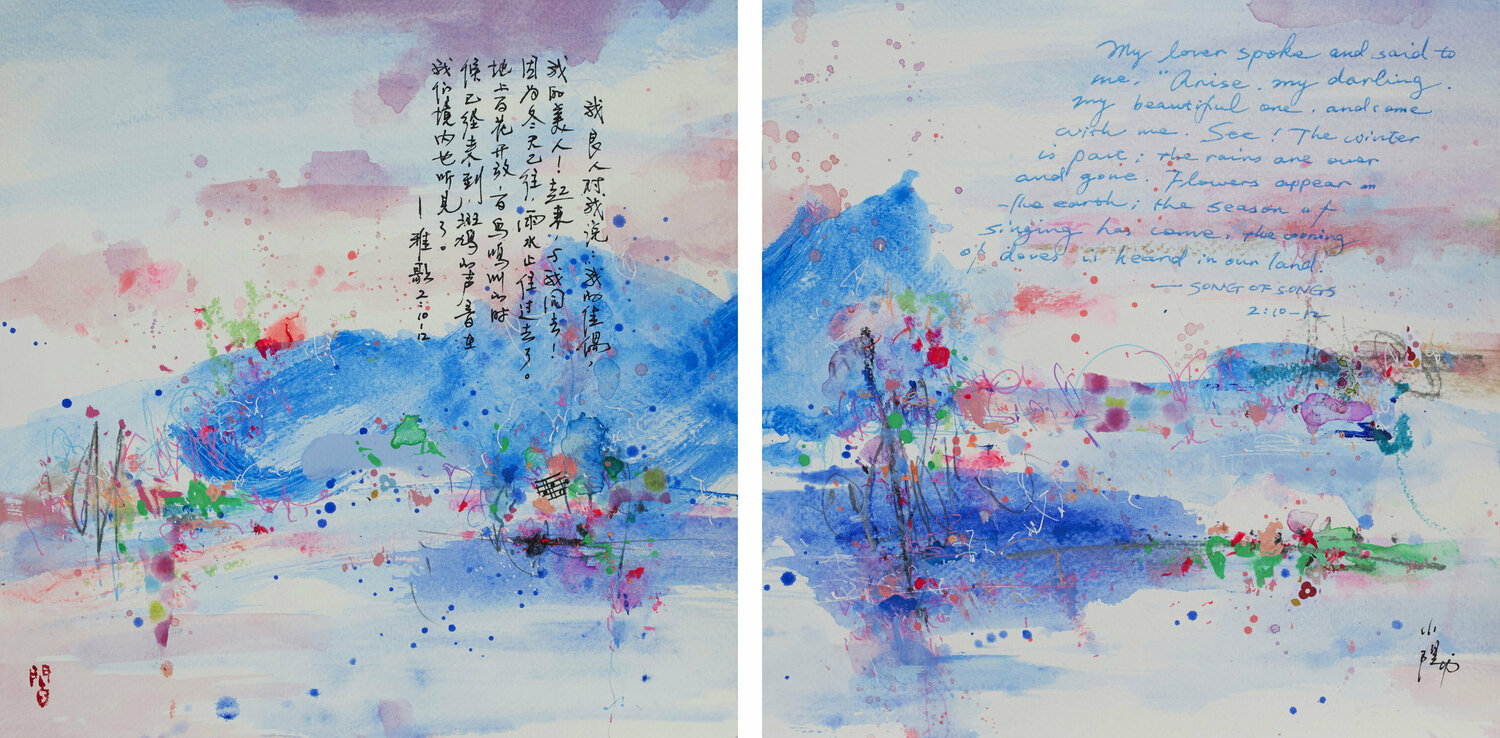 我良人对我说：我的佳偶，
我的美人！起来，与我同去！
因为冬天已往，雨水止住过去了。
地上百花开放，百鸟鸣叫的时
候已经来到，斑鸠的声音在
我们境内也听见了。
— 雅歌 2:10-12
My lover spoke and said to
me, "Arise, my darling,
my beautiful one, and come
with me. See! The winter
is past; the rains are over
and gone. Flowers appear on
the earth; the season of
singing has come, the cooing
of doves is heard in our land.
— SONG OF SONGS
2:10-12